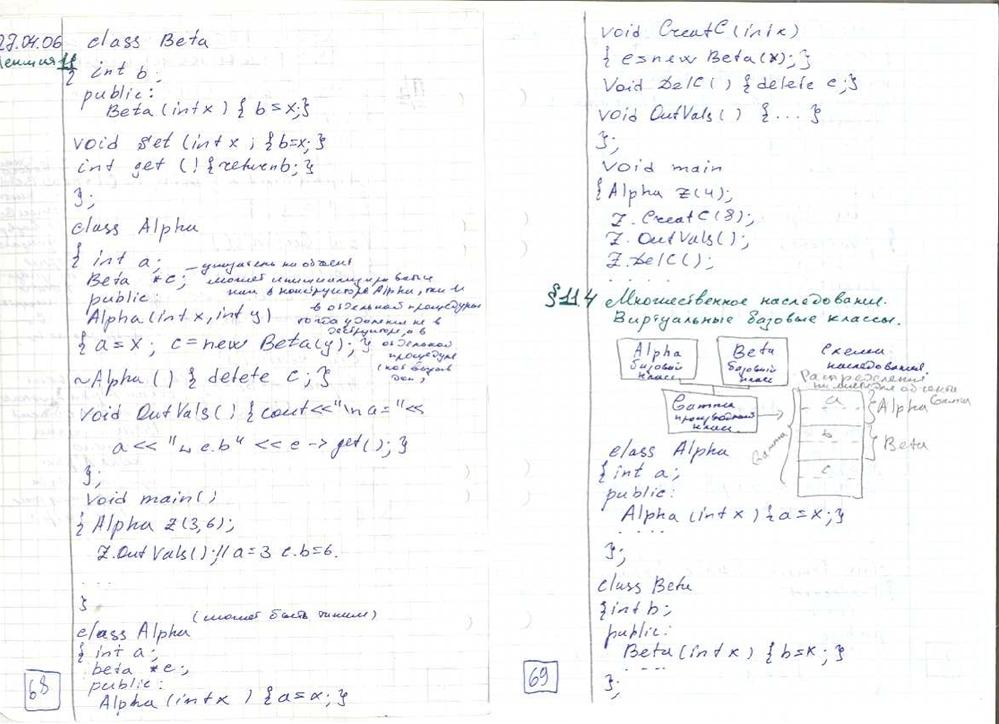 27.04.06
Лекция 11
class Beta
{ int b;
public:
Beta (int x) { b = x; }
void set (int x) { b=x; }
int get () { return b; }
};
class Alpha
{ int a;
Beta *c; — указатель на объект
может инициализироваться
public: или в конструкторе Alpha, или
в отдельной процедуре
Alpha (int x, int y) тогда удаление не в
деструкторе, а в
{ a = x; c = new Beta(y); } отдельной
процедуре
~Alpha () { delete c; }
void OutVals () { cout << "\n a = " <<
a << " c.b" << c -> get (); }
};
void main ()
{ Alpha Z (3,6);
Z.OutVals (); // a = 3 c.b = 6.
. . .
}
(может быть таким)
class Alpha
{ int a;
beta *c;
public:
Alpha (int x) { a = x; }
68
void CreatC (int x)
{ c = new Beta (x); }
Void DelC () { delete c; }
void OutVals () { ... }
};
void main
{ Alpha Z (4);
Z.CreatC (8);
Z.OutVals ();
Z.DelC ();
. . . .
§ 11.4 Множественное наследование.
Виртуальные базовые классы.
Alpha
базовый
класс
Beta
базовый
класс
Схема
наследования.
Распределения
объекта
Gamma
Gamma
производный
класс
a
b
c
Alpha
Beta
Gamma
class Alpha
{ int a;
public:
Alpha (int x) { a = x; }
. . . .
};
class Beta
{ int b;
public:
Beta (int x) { b = x; }
. . . .
};
69